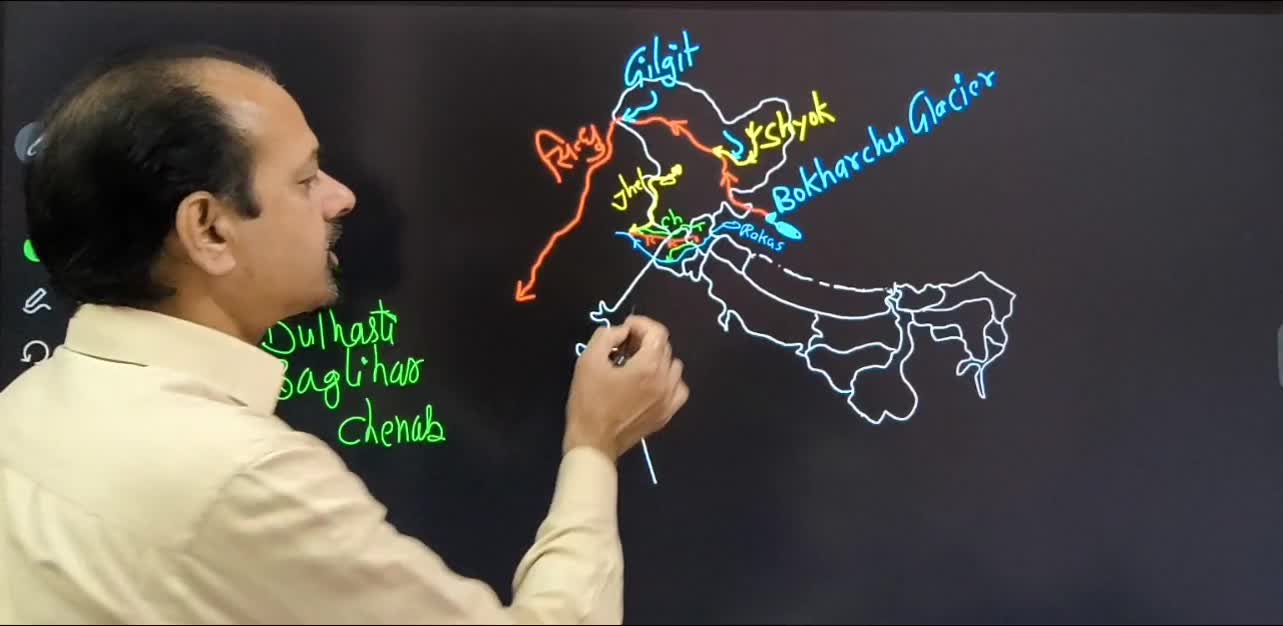 Gilgit
Shyok
Bokharchu Glacier
सिन्धु
Jhel
Ch
Rakas
Dulhasti
Baglihar
Chenab